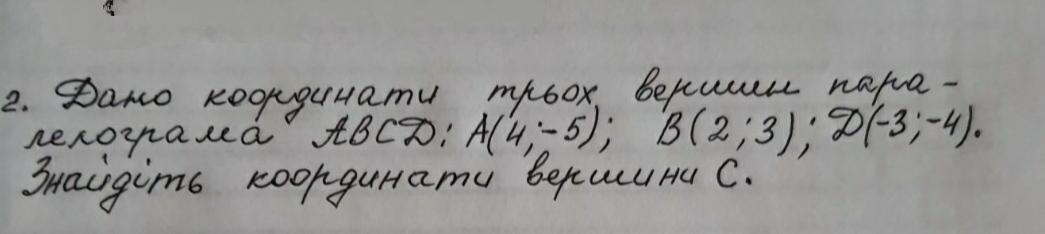 2. Дано координати трьох вершин пара-
лелограма ABCD: A(4;-5); B(2;3); D(-3;-4).
Знайдіть координати вершини С.